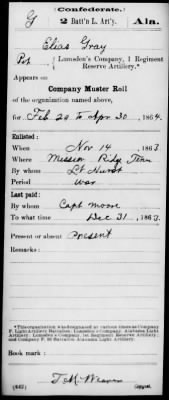 (Confederate.)
G 2 Batt'n L. Art'y. Ala.
Elias Gray
Pvt, Lumsden's Company, 1 Regiment
Reserve Artillery.*
Appears on
Company Muster Roll
of the organization named above,
for Feb 29 to Apr 30, 1864.
Enlisted:
When Nov 14, 1863
Where Mission Ridge Tenn
By whom Lt Hurst
Period war
Last paid:
By whom Capt Moore
To what time Dec 31, 1863.
Present or absent Present
Remarks:
*This organization was designated at various times as Company
F, Light Artillery Battalion; Lumsden's Company, Alabama Light
Artillery; Lumsden's Company, 1st Regiment Reserve Artillery;
and Company F, 2d Battalion Alabama Light Artillery.
Book mark:
(642) Copyist.